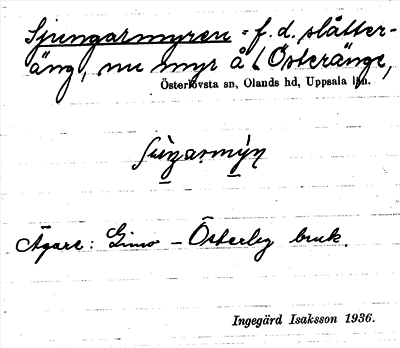 Sjungarmyren = f.d. slåtter-
äng, nu myr å Österänge,
Österlövsta sn, Olands hd, Uppsala län.
Ägare: Gimo – Österby bruk.
Ingegärd Isaksson 1936.